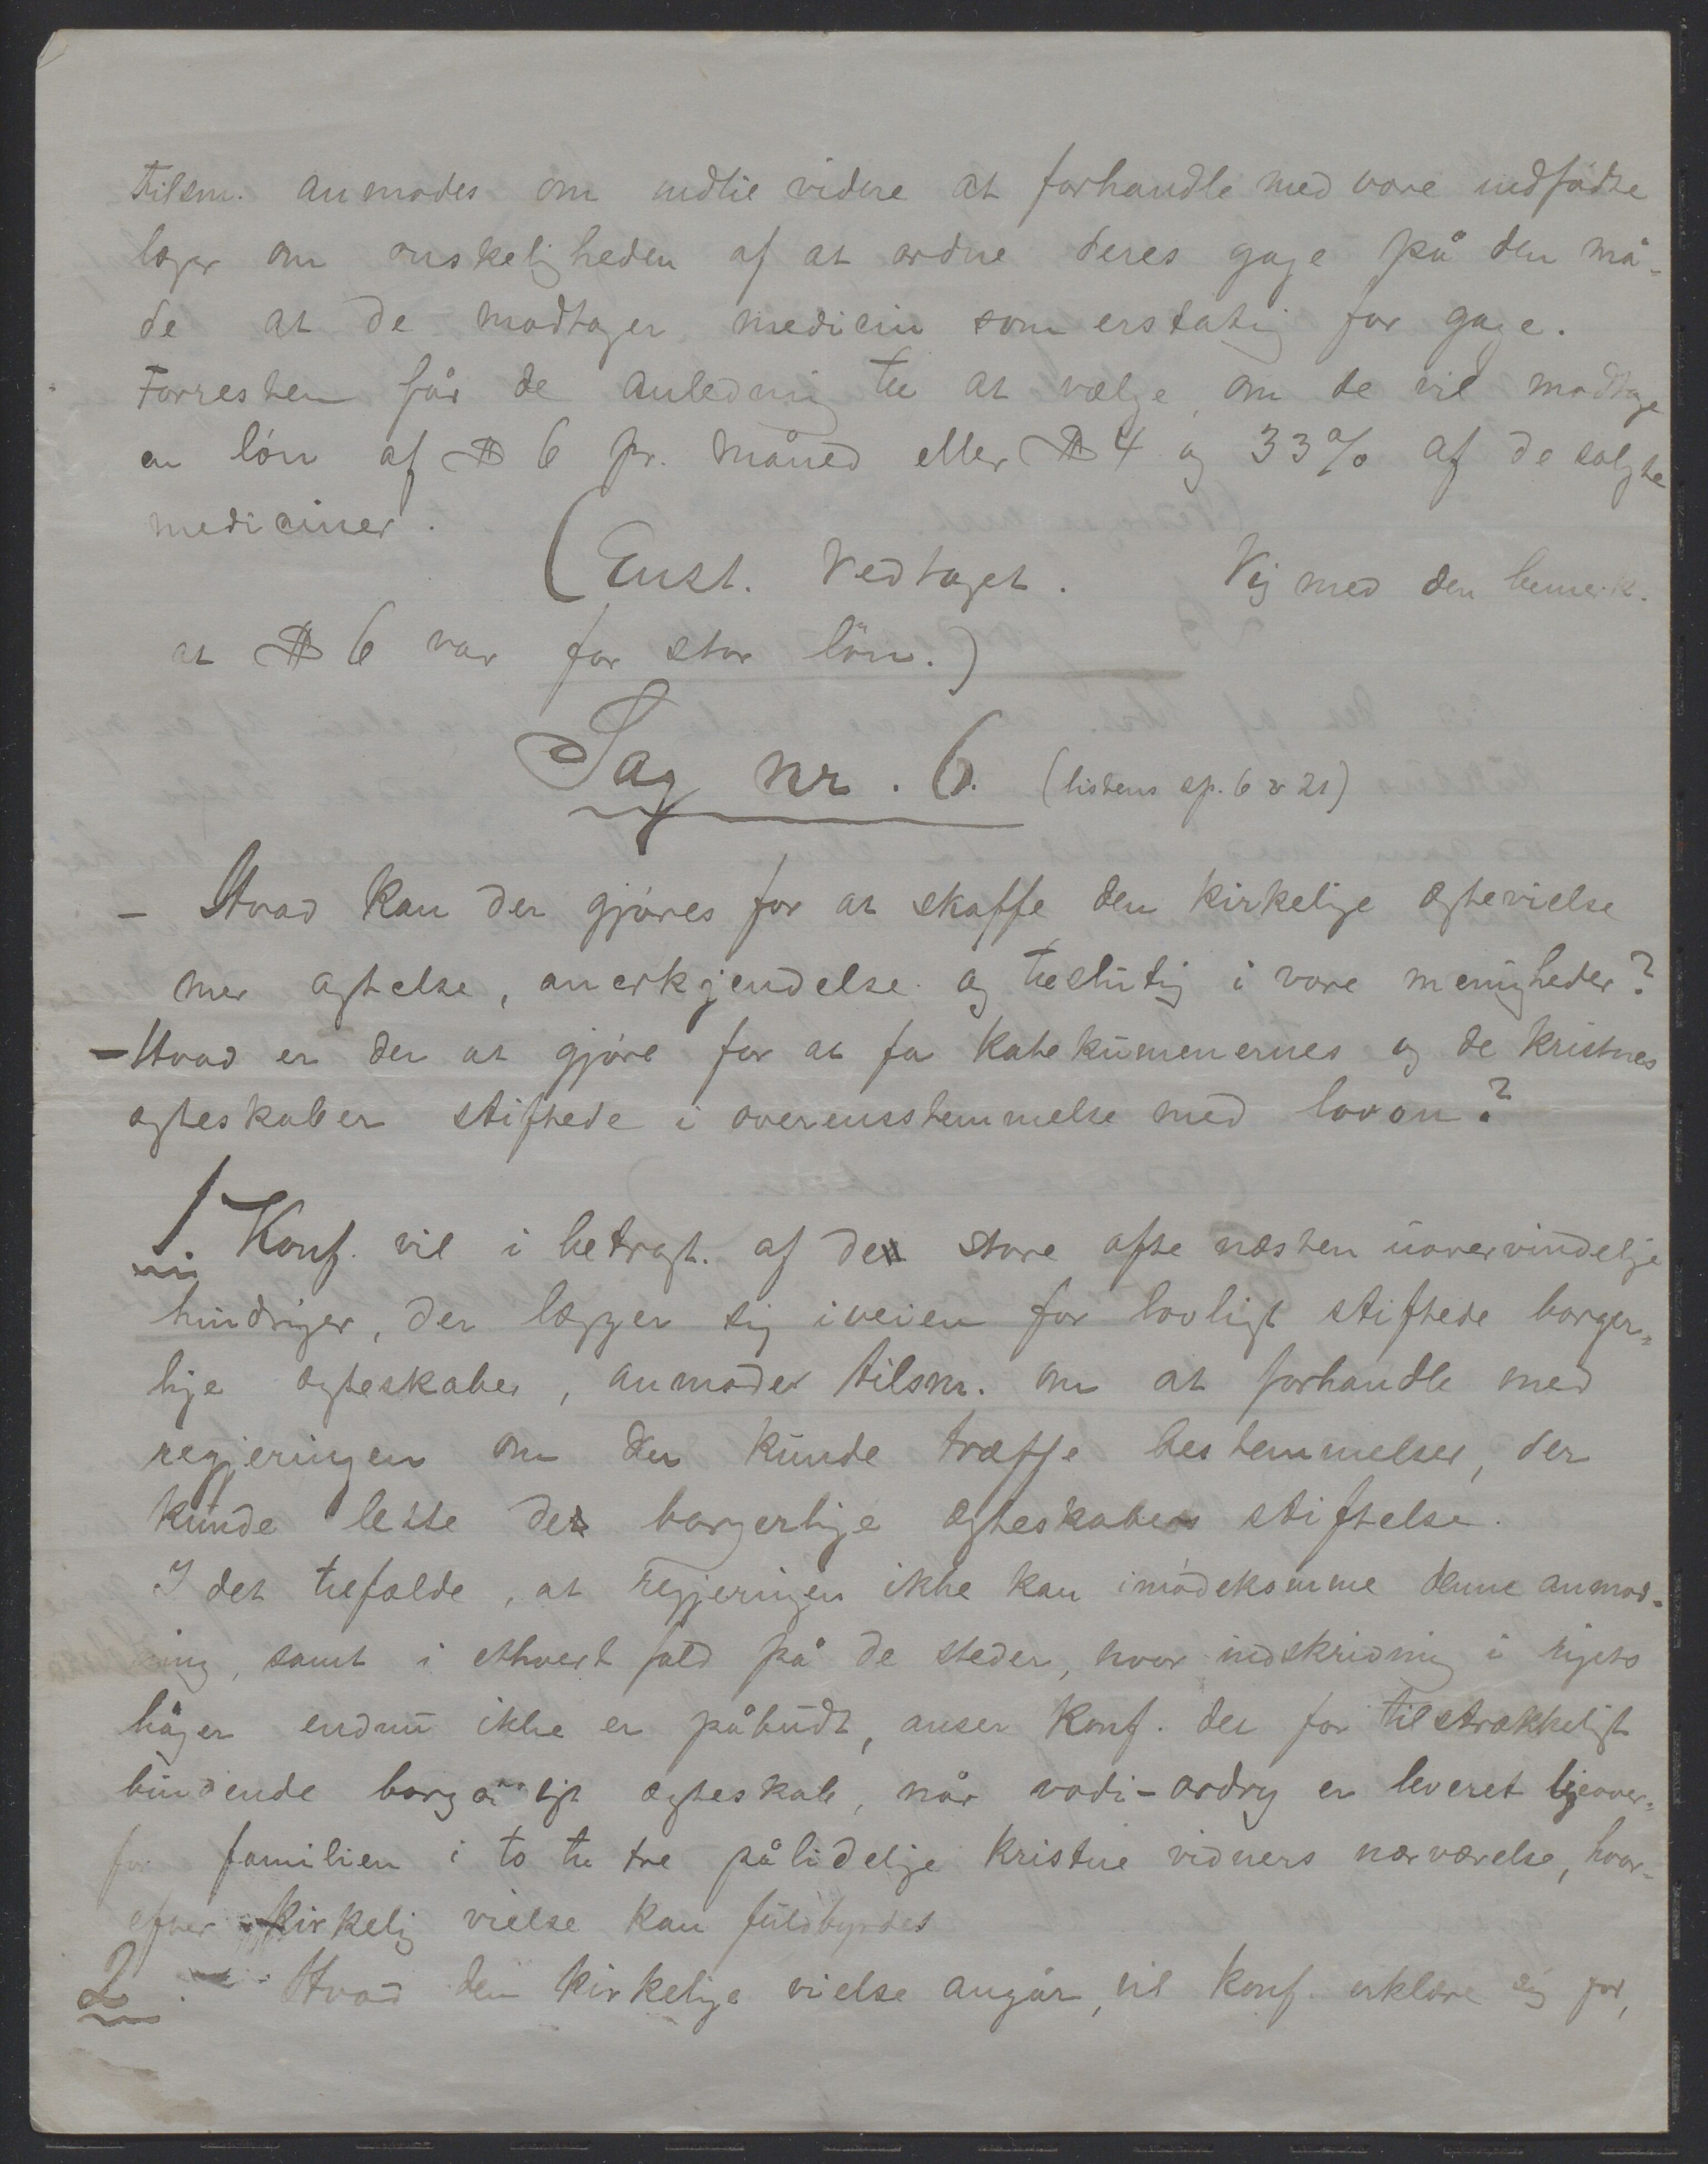 tilsm. anmodes om indtil videre at forhandle med vore indfødte
læger om ønskeligheden af at ordne deres gage på den må-
de at de modtager medicin som erstatnig for gage.
Forresten får de anledning til at vælge, om de vil modtage
en løn af $ 6 pr. måned eller $ 4 og 33 % af de solgte
mediciner.
(Enst. Vedtaget. Vig med den bemerk.
at $ 6 var for stor løn.)
Sag nr. 6. (listens sp. 6 & 21)
- Hvad kan der gjøres for at skaffe den kirkelige ægtevielse
mer agtelse, anerkjendelse og tilslutnig i vore menigheder?
- Hvad er der at gjøre for at fa katekumenernes og de kristnes
ægteskaber stiftede i overensstemmelse med loven?
1. Konf. vil i betragt. af de store ofte næsten uovervindelige
hindriger, der lægger sig iveien for lovligt stiftede borger-
lige ægteskaber, anmoder tilsm. om at forhandle med
regjeringen om der kunde træffe bestemmelser, der
kunde lette de borgerlige ægteskabers stiftelse.
I det tilfælde, at regjeringen ikke kan imødekomme denne anmod-
ning, samt i ethvert fald på de steder, hvor indskridning i rigets
bøger endnu ikke er påbudt, anser Konf. det for tilstrækkeligt
bindende borgerligt ægteskab, når vodi-ondry er leveret ligeover-
for familien i to til tre pålidelige kristne vidners nærværelse, hvor-
efter kirkelig vielse kan fuldbyrdes
2. - Hvad den kirkelige vielse angår, vil konf. erklære sig for,